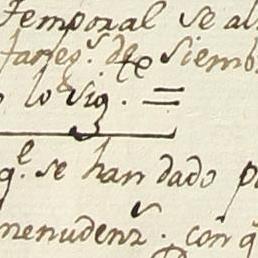 temporal se al
de siemb
lo sig.te =
q.l se han dado p
menudenz.s con q